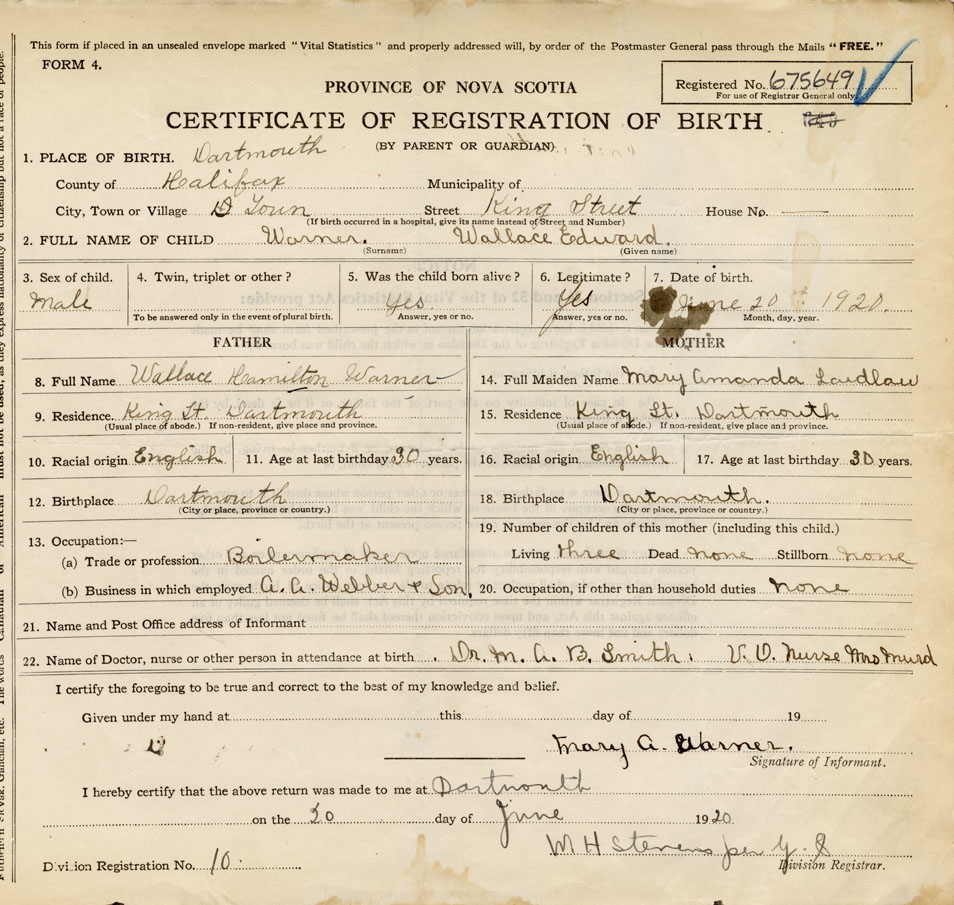 This form if placed in an unsealed envelope marked "Vital Statistics" and properly addressed will, by order of the Postmaster General pass through the Mails "FREE."
FORM 4.
Registered No. 675649
For use of Registrar General only
PROVINCE OF NOVA SCOTIA
CERTIFICATE OF REGISTRATION OF BIRTH
(BY PARENT OR GUARDIAN)
1. PLACE OF BIRTH. Dartmouth
County of Halifax Municipality of
City, Town or Village D Town Street King Street House No. —
(If birth occurred in a hospital, give its name instead of Street and Number)
2. FULL NAME OF CHILD Warner. Wallace Edward.
(Surname) (Given name)
3. Sex of child. 4. Twin, triplet or other? 5. Was the child born alive? 6. Legitimate? 7. Date of birth.
Male Yes Yes June 20th 1920.
To be answered only in the event of plural birth. Answer, yes or no. Answer, yes or no. Month, day, year.
FATHER MOTHER
8. Full Name Wallace Hamilton Warner 14. Full Maiden Name Mary Amanda Laidlaw
9. Residence. King St. Dartmouth 15. Residence King St. Dartmouth
(Usual place of abode.) If non-resident, give place and province. (Usual place of abode.) If non-resident, give place and province.
10. Racial origin English 11. Age at last birthday 30 years. 16. Racial origin English 17. Age at last birthday 30 years.
12. Birthplace Dartmouth 18. Birthplace Dartmouth.
(City or place, province or country.) (City or place, province or country.)
13. Occupation:— 19. Number of children of this mother (including this child.)
(a) Trade or profession Boilermaker Living three Dead none Stillborn none
(b) Business in which employed A. A. Webber & Son. 20. Occupation, if other than household duties none
21. Name and Post Office address of Informant
22. Name of Doctor, nurse or other person in attendance at birth Dr. M. A. B. Smith. V. O. Nurse Mrs
I certify the foregoing to be true and correct to the best of my knowledge and belief.
Given under my hand at this day of 19
Mary A. Warner.
Signature of Informant.
I hereby certify that the above return was made to me at Dartmouth
on the 30 day of June 1920
M H Stevens per
Division Registration No. 10. Division Registrar.